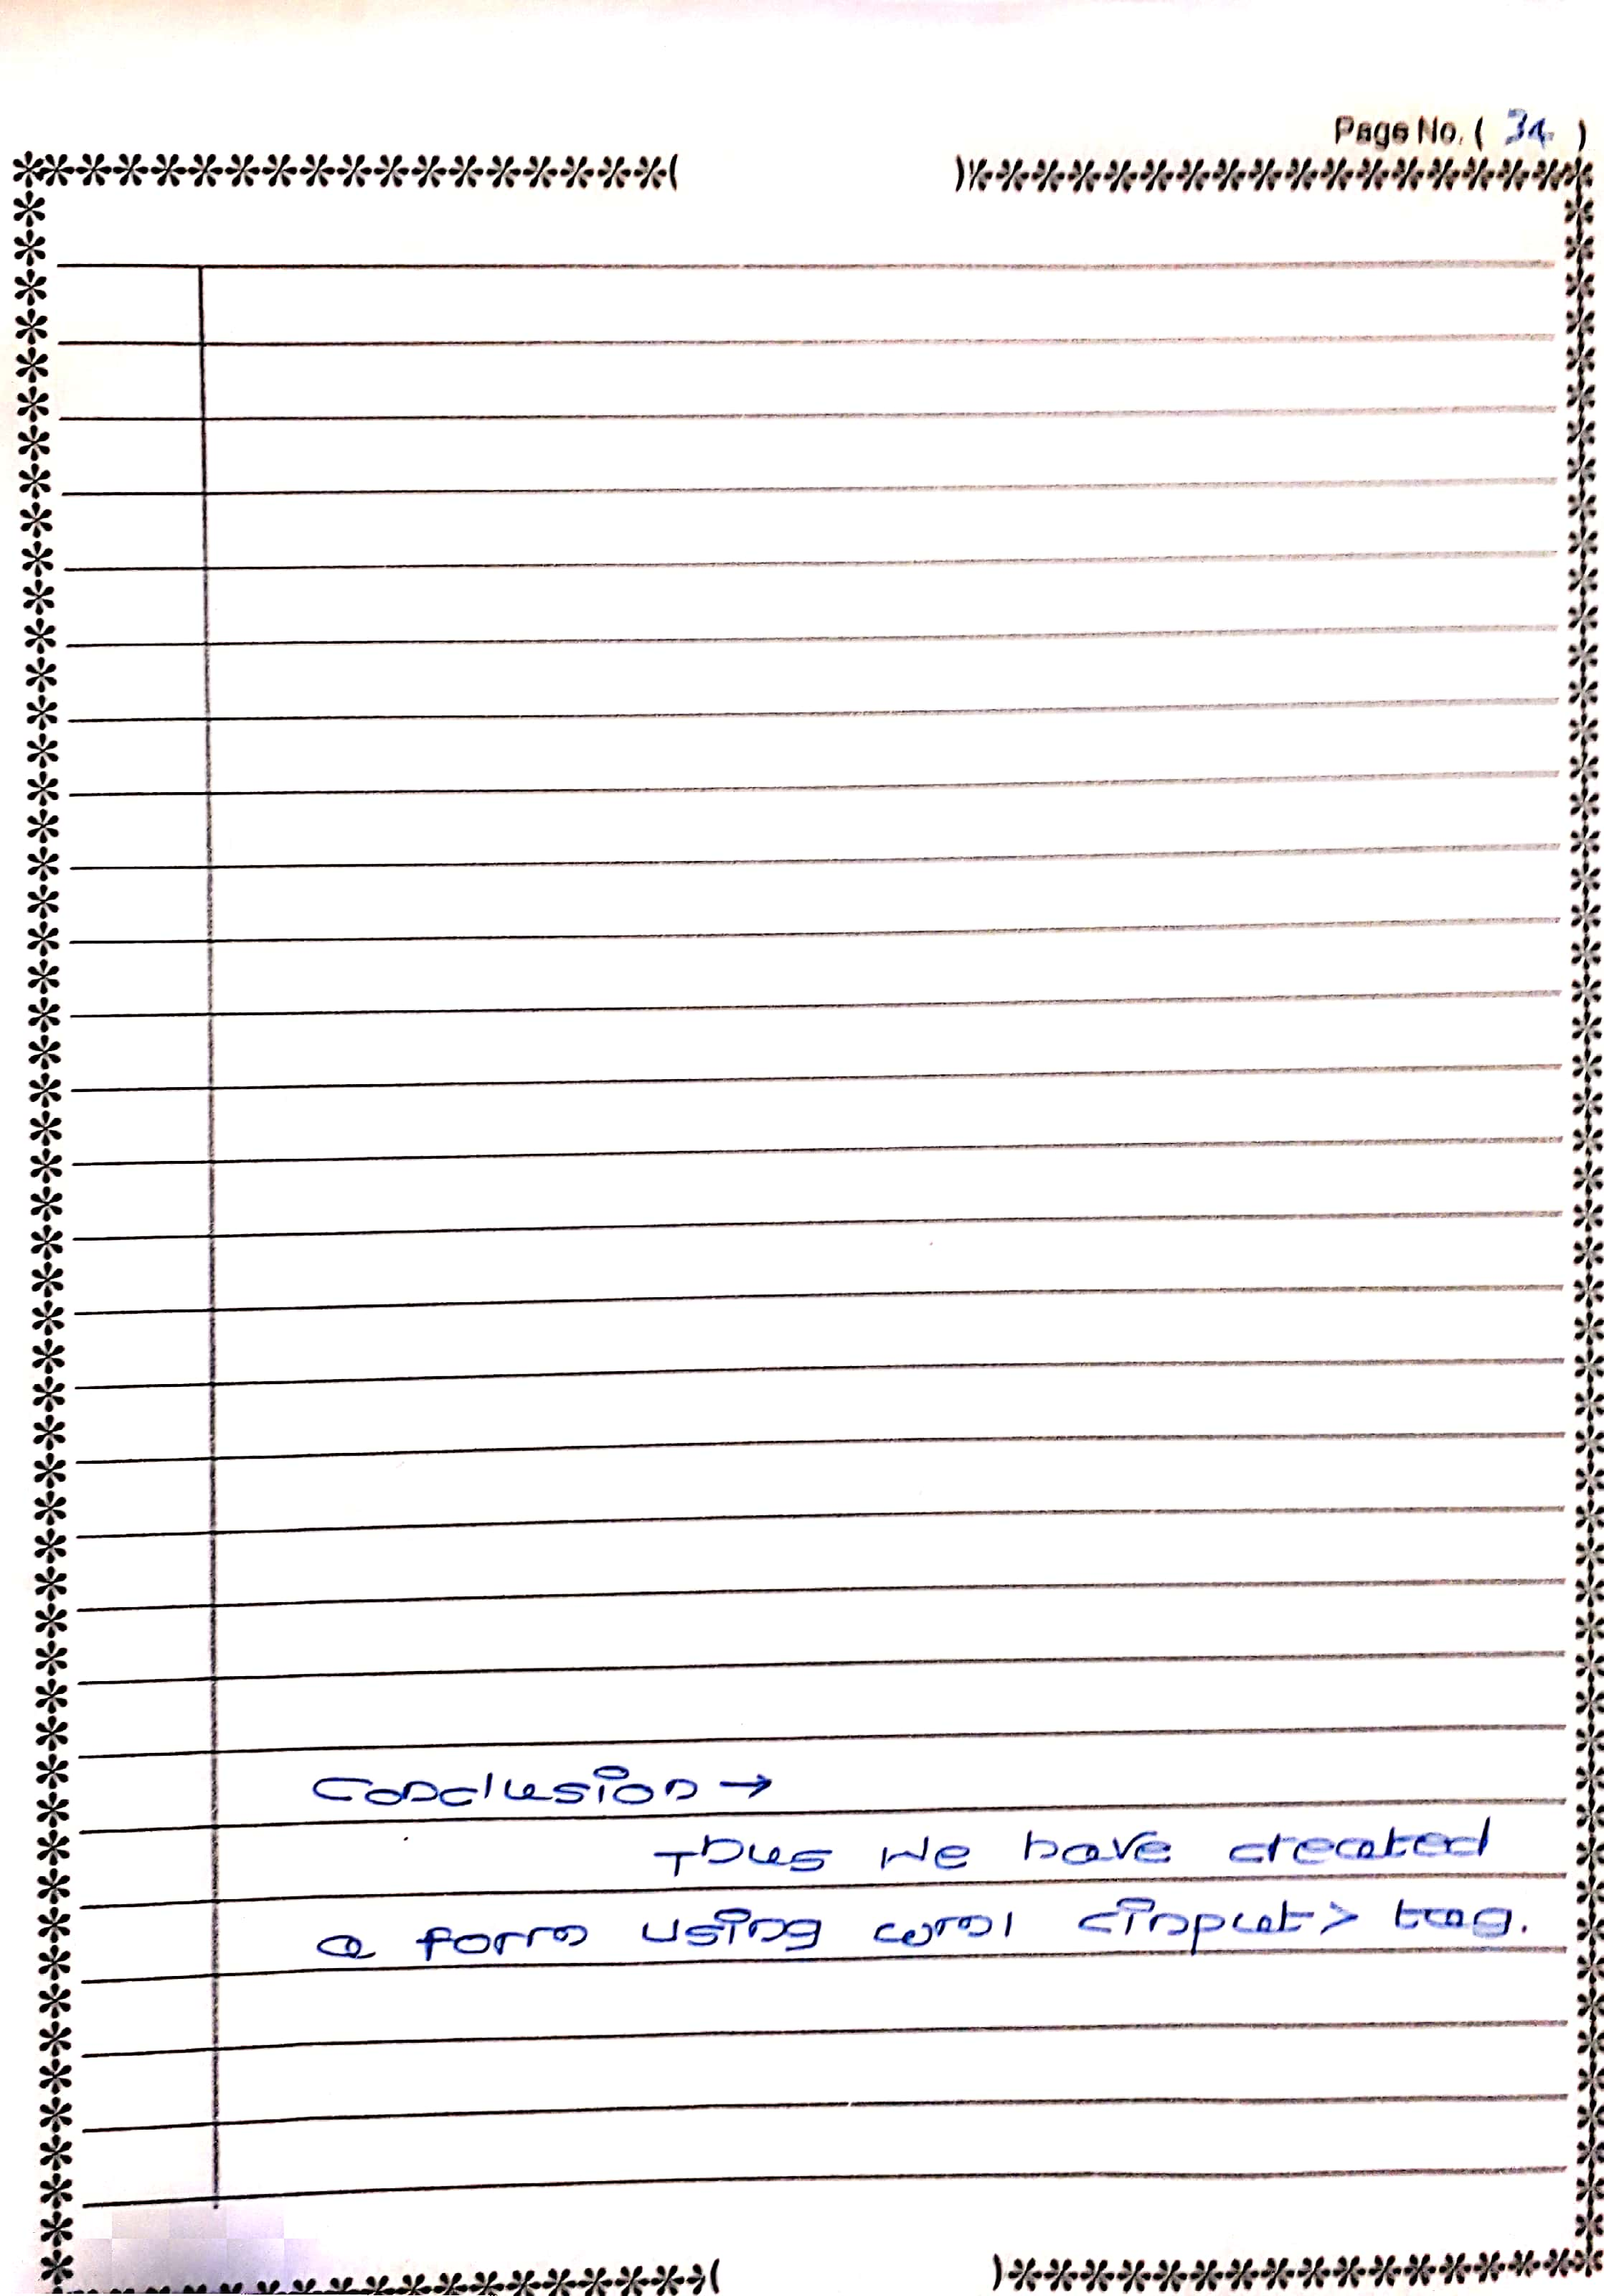 Page No. ( 34 )
Conclusion →
Thus We have created
a form using wml <input> tag.